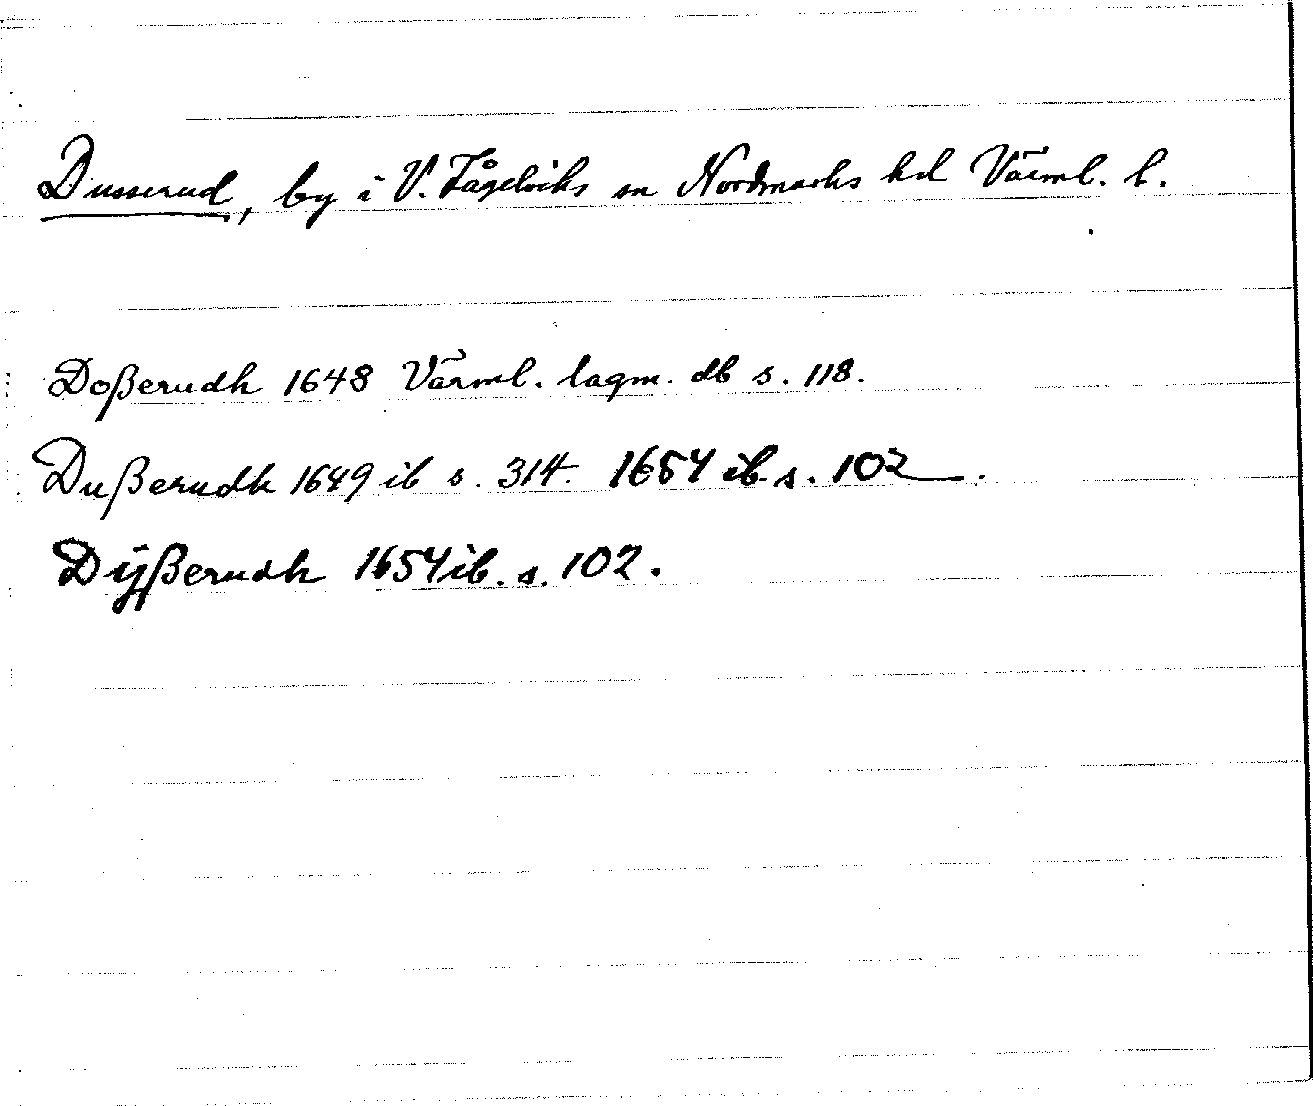 Dusserud, by i V. Fågelviks sn Nordmarks hd Värml. l.
Doßerudh 1648 Värml. lagm. db s. 118.
Dußerudh 1649 ib s. 314. 1654 ib. s. 102.
Dÿßerudh 1654 ib. s. 102.